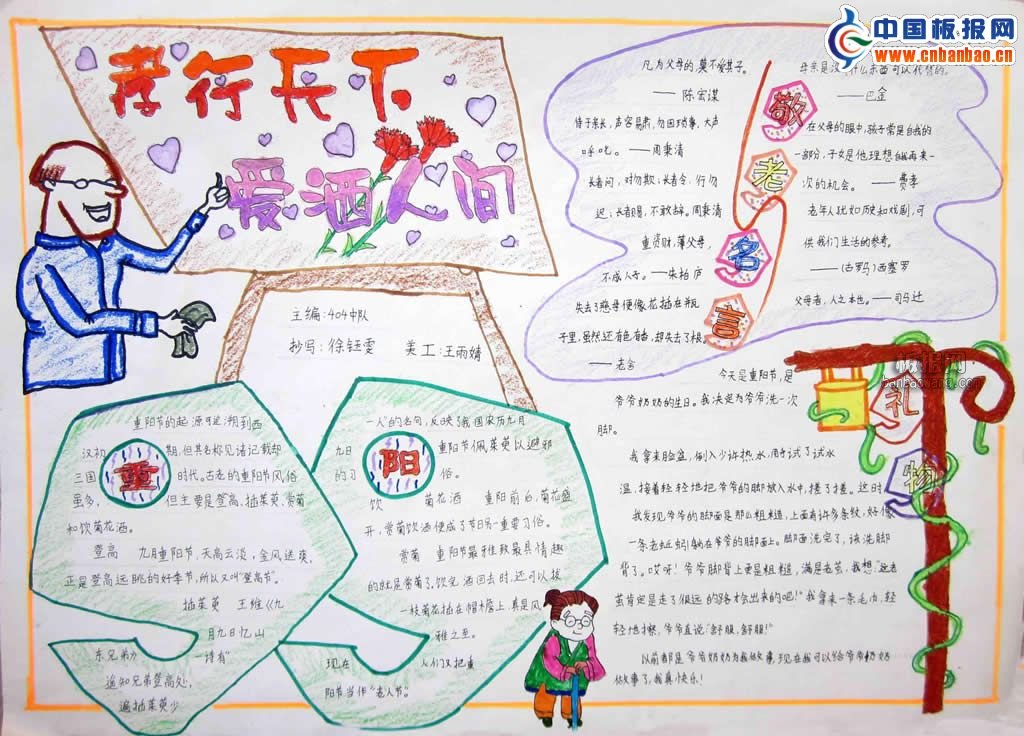 中国板报网
www.cnbanbao.cn
孝行天下
爱洒人间
主编:404中队
抄写:徐钰雯 美工:王雨婧
敬老名言
凡为父母的莫不爱其子。
——陈宏谋
侍于亲长,声容易肃,勿因琐事,大声
呼叱。——周秉清
长者问,对勿欺;长者令,行勿
迟;长者赐,不敢辞。周秉清
重资财,薄父母,
不成人子。——朱柏庐
失去了慈母便像花插在瓶
子里,虽然还有色有香,却失去了根。
——老舍
母亲是没有什么东西可以代替的。
——巴金
在父母的眼中,孩子常是自我的
一部分,子女是他理想自我再来一
次的机会。——费孝
老年人犹如历史和戏剧,可
供我们生活的参考。
——(古罗马)西塞罗
父母者,人之本也。——司马迁
重
重阳节的起源可追溯到西
汉初期,但其名称见诸记载却
三国时代。古老的重阳节风俗
虽多,但主要是登高,插茱萸,赏菊
和饮菊花酒。
登高 九月重阳节,天高云淡,金风送爽,
正是登高远眺的好季节,所以又叫"登高节"。
插茱萸 王维《九
月九日忆山
东兄弟》一诗有"
遥知兄弟登高处,
遍插茱萸少
阳
一人"的名句,反映了我国农历九月
九日重阳节佩茱萸以避邪
的习俗。
饮菊花酒 重阳前后,菊花盛
开,赏菊饮酒便成了节日另一重要习俗。
赏菊 重阳节最雅致最具情趣
的就是赏菊了,饮完酒回去时,还可以拔
一枝菊花插在帽檐上,真是风
雅之至。
现在人们又把重
阳节当作"老人节。
板报网
banbaowang.com
礼物
今天是重阳节,是
爷爷奶奶的生日。我决定为爷爷洗一次
脚。
我拿来脸盆,倒入少许热水,用手试了试水
温,接着轻轻地把爷爷的脚放入水中,搓了搓。这时
我发现,爷爷的脚面是那么粗糙,上面有许多条纹,好像
一条老蚯蚓躺在爷爷的脚面上。脚面洗完了,该洗脚
背了。哎呀!爷爷脚背上更是粗糙,满是老茧,我想:"这老
茧肯定是走了很远的路才会出来的吧!"我拿来一条毛巾,轻
轻地擦,爷爷直说"舒服,舒服!"
以前都是爷爷奶奶为我做事,现在我可以给爷爷奶奶
做事了,我真快乐!